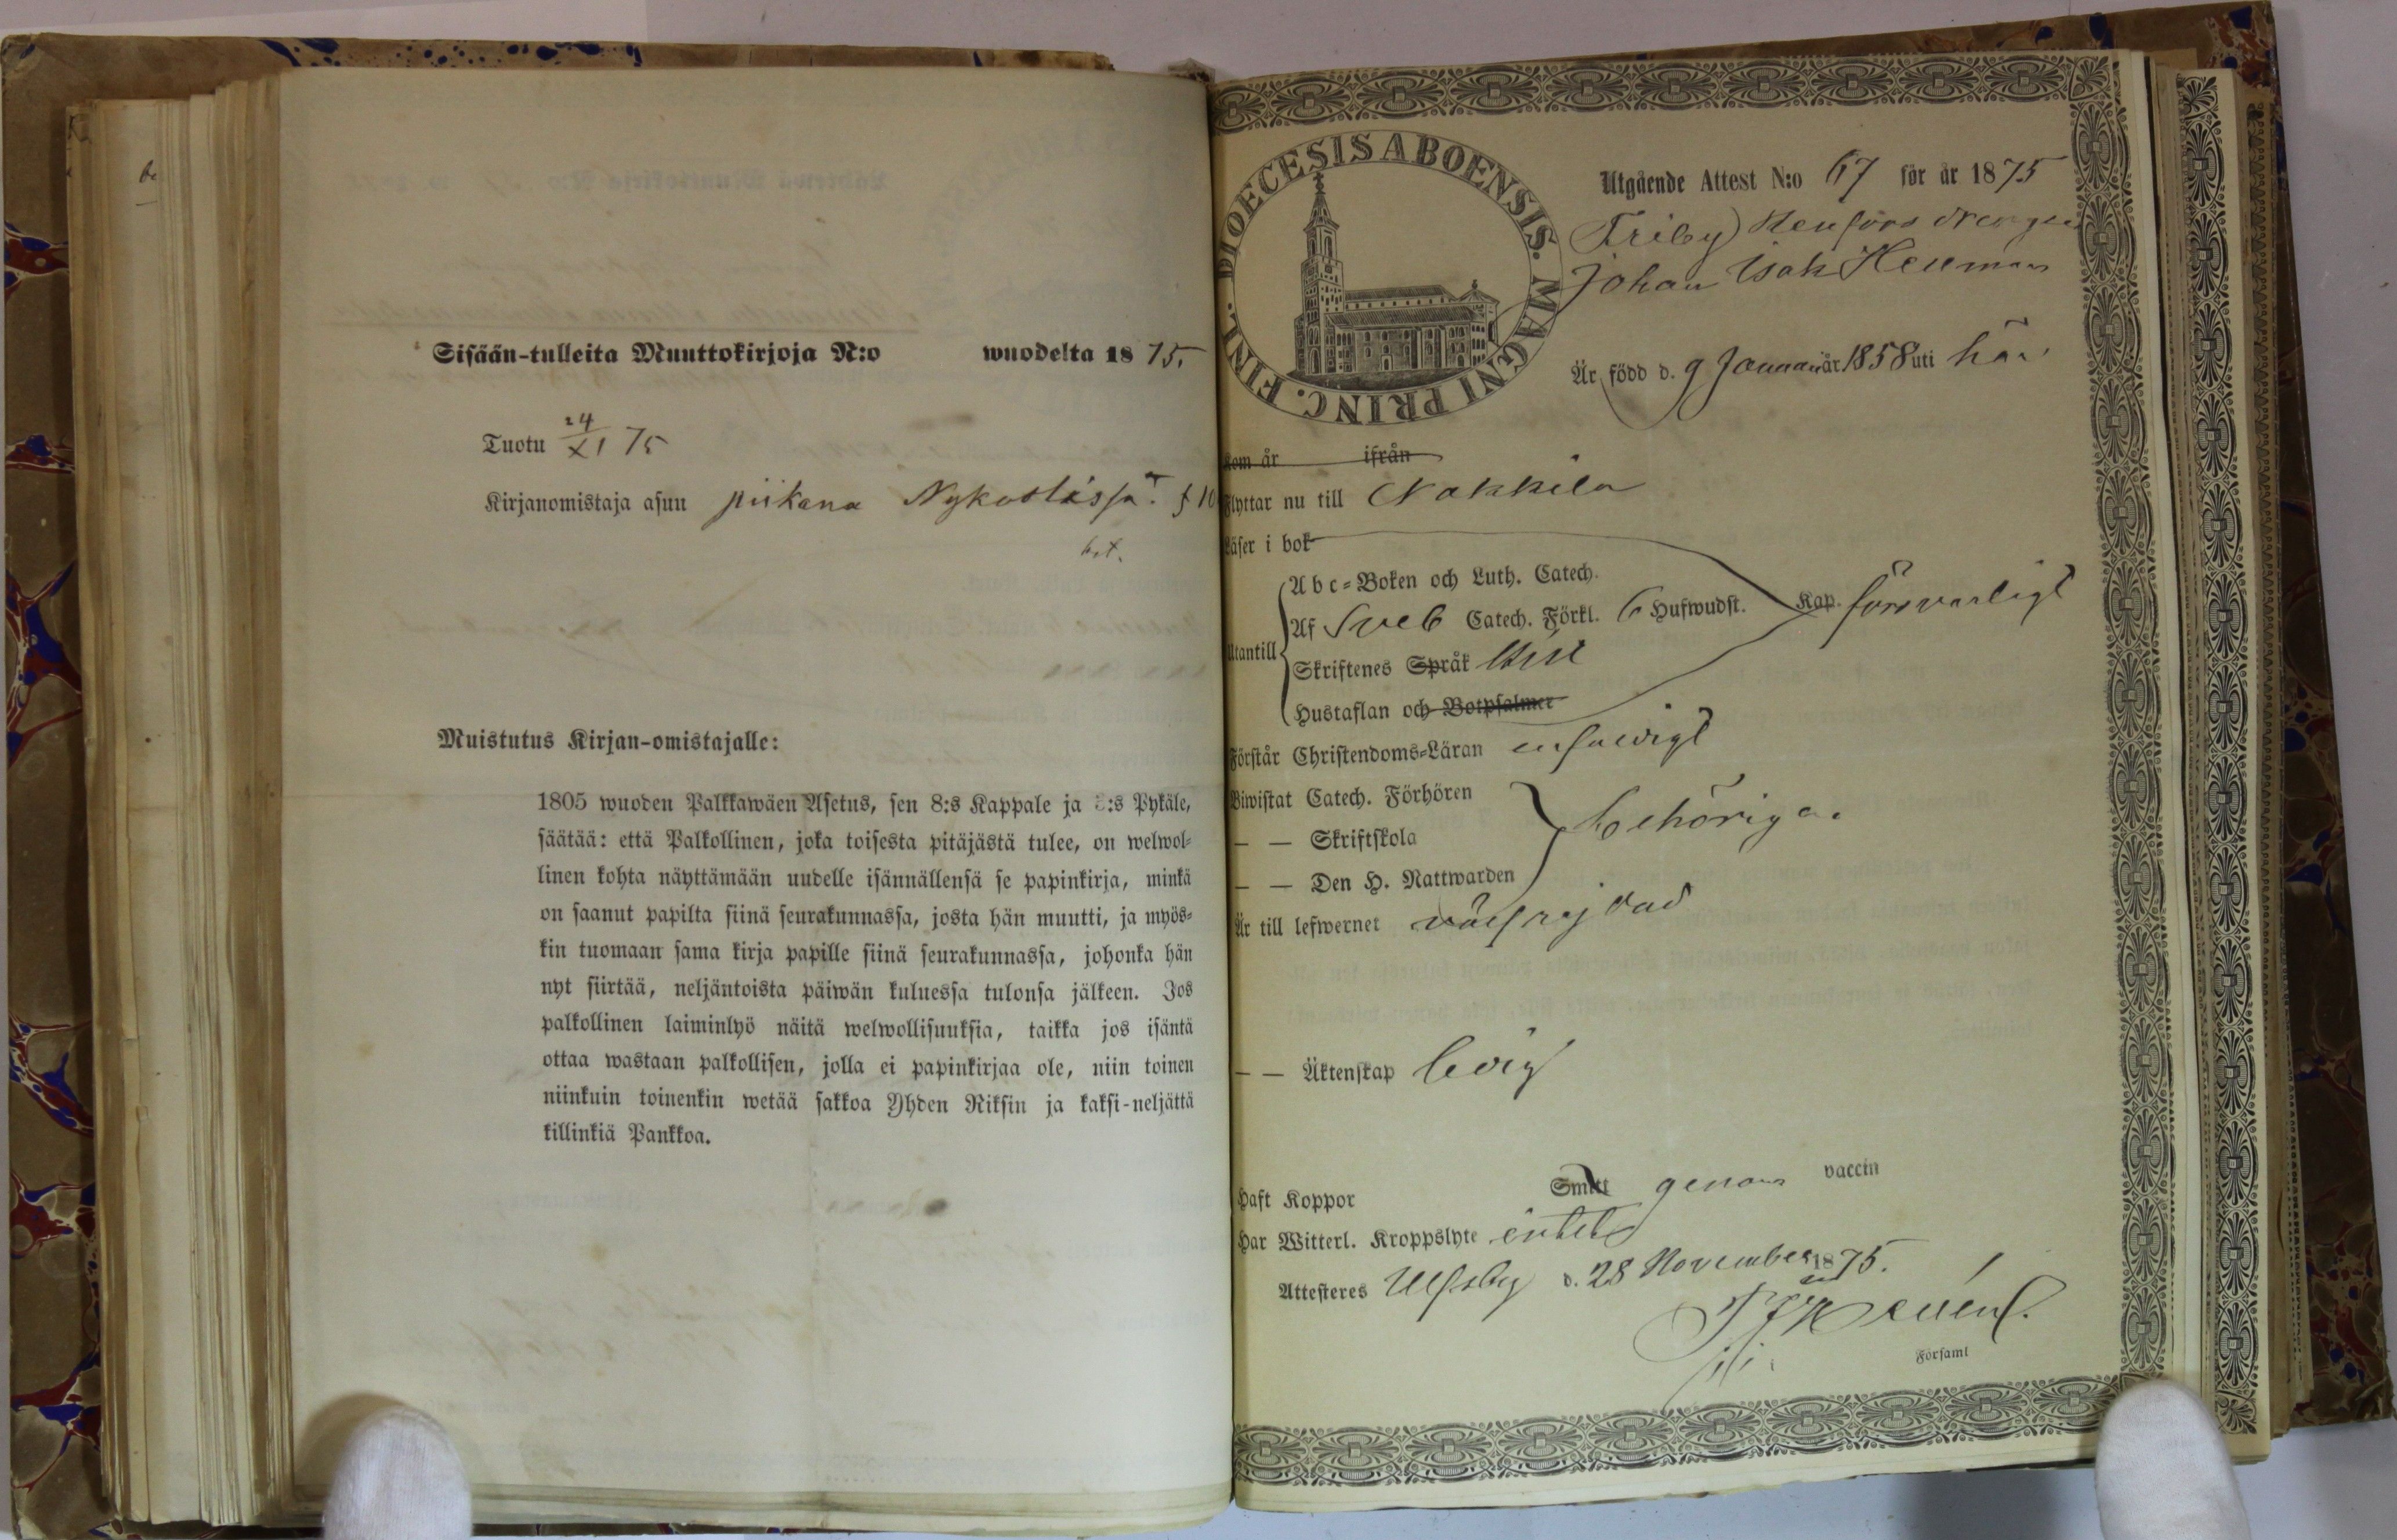 Sisään-tulleita Muuttokirjoja N:o wuodelta 1875.
Tuotu 24/XI 75
Kirjanomistaja asuu piikana
Muistutus Kirjan-omistajalle:
1805 wuoden Palkkawäen Asetus, sen 8:s Kappale ja :s Pykäle,
säätää: että Palkollinen, joka toisesta pitäjästä tulee, on welwol-
linen kohta näyttämään uudelle isännällensä se papinkirja, minkä
on saanut papilta siinä seurakunnassa, josta hän muutti, ja myös-
kin tuomaan sama kirja papille siinä seurakunnassa, johonka hän
nyt siirtää, neljäntoista päiwän kuluessa tulonsa jälkeen. Jos
palkollinen laiminlyö näitä welwollisuuksia, taikka jos isäntä
ottaa wastaan palkollisen, jolla ei papinkirjaa ole, niin toinen
niinkuin toinenkin wetää sakkoa Yhden Riksin ja kaksi-neljättä
killinkiä Pankkoa.
DIOECESIS ABOENSIS. MAGNI PRINC. FINL.
Utgående Attest N:o 67 för år 1875
Friby Drengen
Johan Isak Hellman
Är född d. 9 Januari år 1858 uti här
Kom år ifrån
Flyttar nu till Nakkila
Läser i bok
Abc-Boken och Luth. Catech.
Utantill Af Sveb Catech. Förkl. 6 Hufwudst. Kap. försvarligt
Skriftenes Språk
Hustaflan och Botpsalmer
Förstår Christendoms-Läran enfaldigt
Biwistat Catech. Förhören
— — Skriftskola behörigen
— — Den H. Nattwarden
Är till lefwernet välfrejdad
— — Äktenskap ledig
Haft Koppor Smitt genom vaccin
Har Witterl. Kroppslyte intet
Attesteres Ulfsby d. 28 November 1875.
Församl